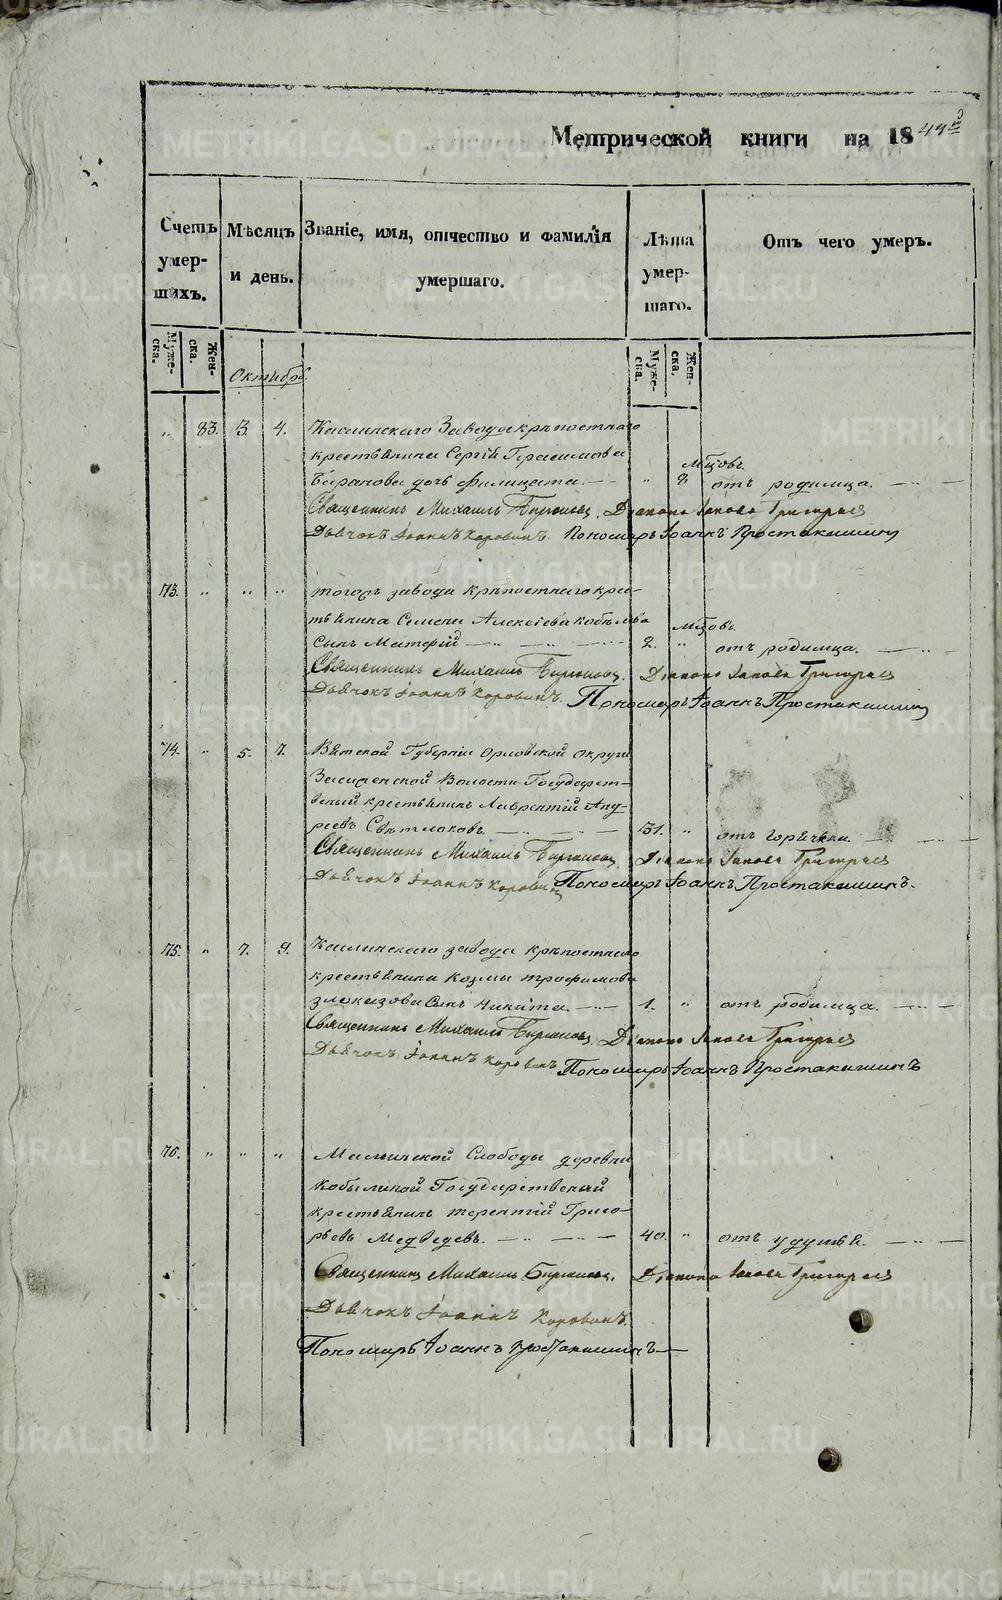 Метрической книги на 18
Счетъ умер- шихъ.
Мѣсяцъ и день.
Званіе, имя, отчество и фамилія умершаго.
Лѣта умер- шаго.
Отъ чего умеръ.
Муже- ска.
Жен- ска.
Муже- ска.
Жен- ска.
Октябрь.
„ 83. 3. 4. Каслинскаго Завода крѣпостнаго
крестьянина Сергій Герасимова мѣсцовъ.
Баранова дочь Филицата. „ 2 отъ родимца.
Священникъ Михаилъ Діаконъ Іаковъ Григорьев
Дьячокъ Іоаннъ Коровинъ. Пономарь Іоаннъ Простакишинъ
73. „ „ „ тогожъ завода крѣпостнаго кре-
тьянина Семена Алексіева Кобелева мѣсцовъ.
Сынъ Матфій 2. „ отъ родимца.
Священникъ Михаилъ Діаконъ Іаковъ Григорьев
Дьячокъ Іоаннъ Коровинъ. Пономарь Іоаннъ Простакишинъ
74. „ 5. 7. Вятской Губерніи Орловской округи
Волости Государст-
венный крестьянинъ Лаврентій Анд-
реевъ Свѣтлаковъ. 31. „ отъ горячки.
Священникъ Михаилъ Діаконъ Іаковъ Григорьев
Дьячокъ Іоаннъ Коровинъ Пономарь Іоаннъ Простакишинъ.
75. „ 7. 9. Каслинскаго завода крѣпостнаго
крестьянина Козмы трофимова
злоказова Сынъ Никита. 1. „ отъ родимца.
Священникъ Михаилъ Діаконъ Іаковъ Григорьев
Дьячокъ Іоаннъ Коровинъ Пономарь Іоаннъ Простакишинъ
76. „ „ „ Слободы деревни
Кобылиной Государственный
крестьянинъ терентій Григо-
рьевъ Медведевъ. 40. „ отъ удушья.
Священникъ Михаилъ Діаконъ Іаковъ Григорьев
Дьячокъ Іоаннъ Коровинъ.
Пономарь Іоаннъ Простакишинъ
METRIKI.GASO-URAL.RU